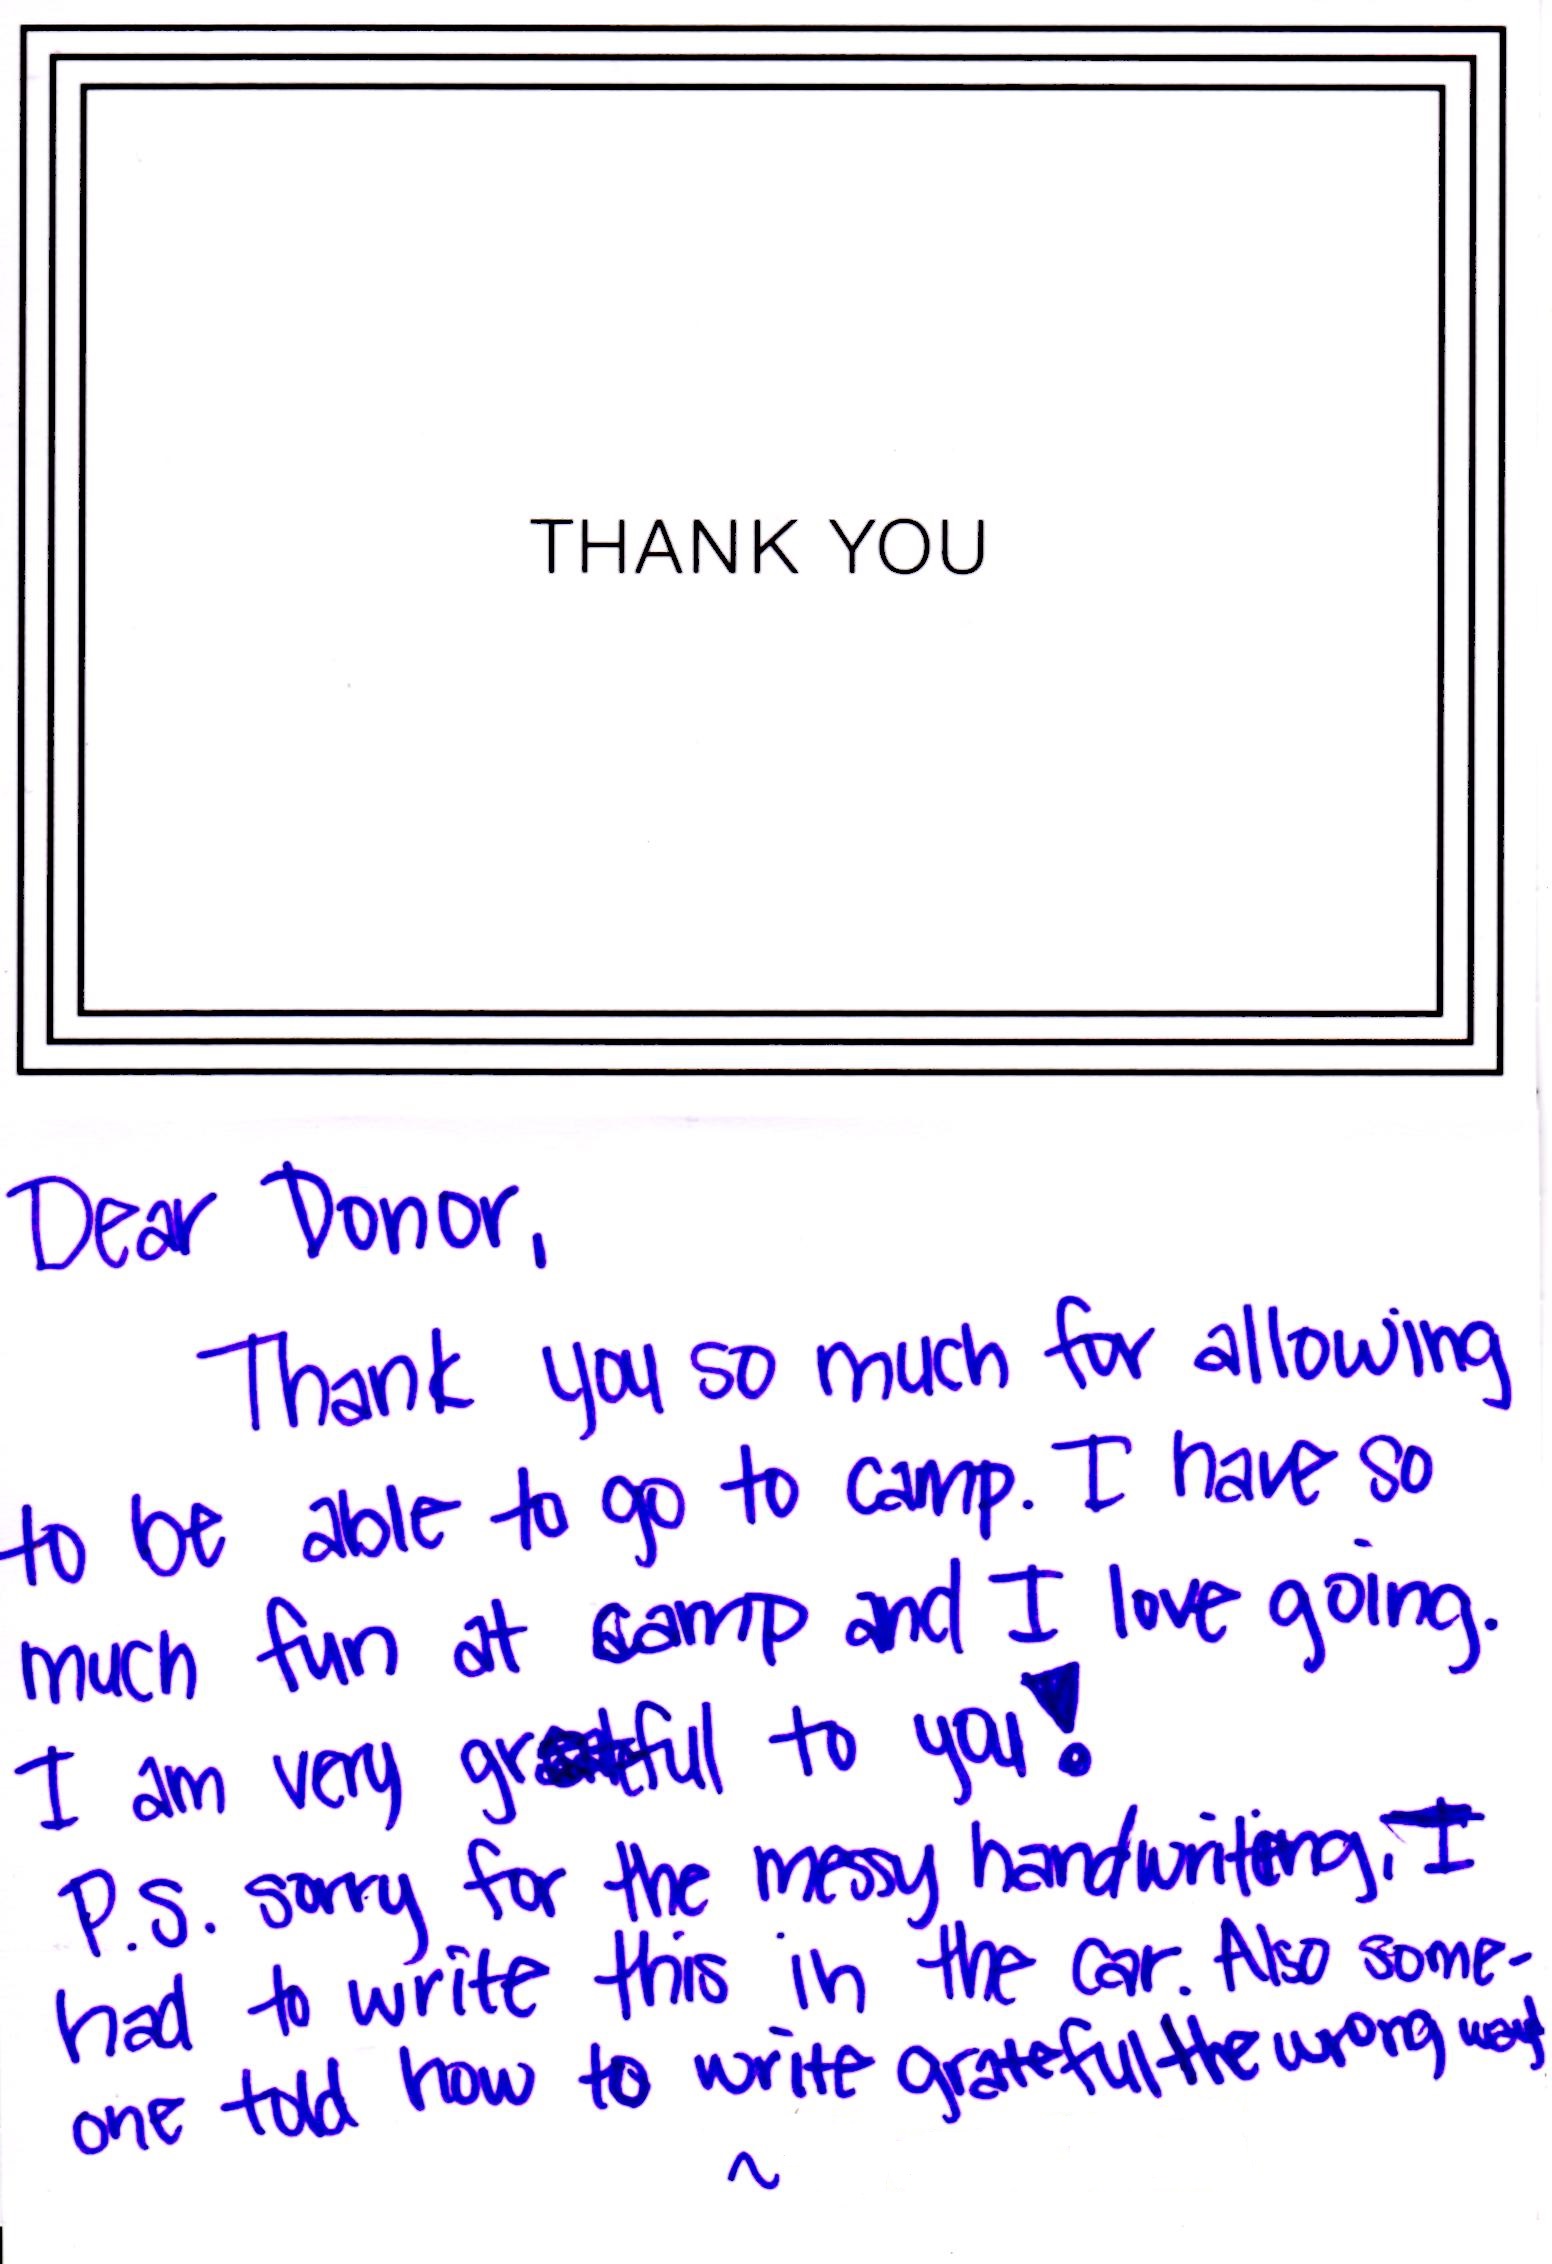 THANK YOU
Dear Donor,
Thank you so much for allowing
to be able to go to camp. I have so
much fun at camp and I love going.
I am very grateful to you!
P.S. sorry for the messy handwriting, I
had to write this in the car. Also some-
one told how to write grateful the wrong way
~